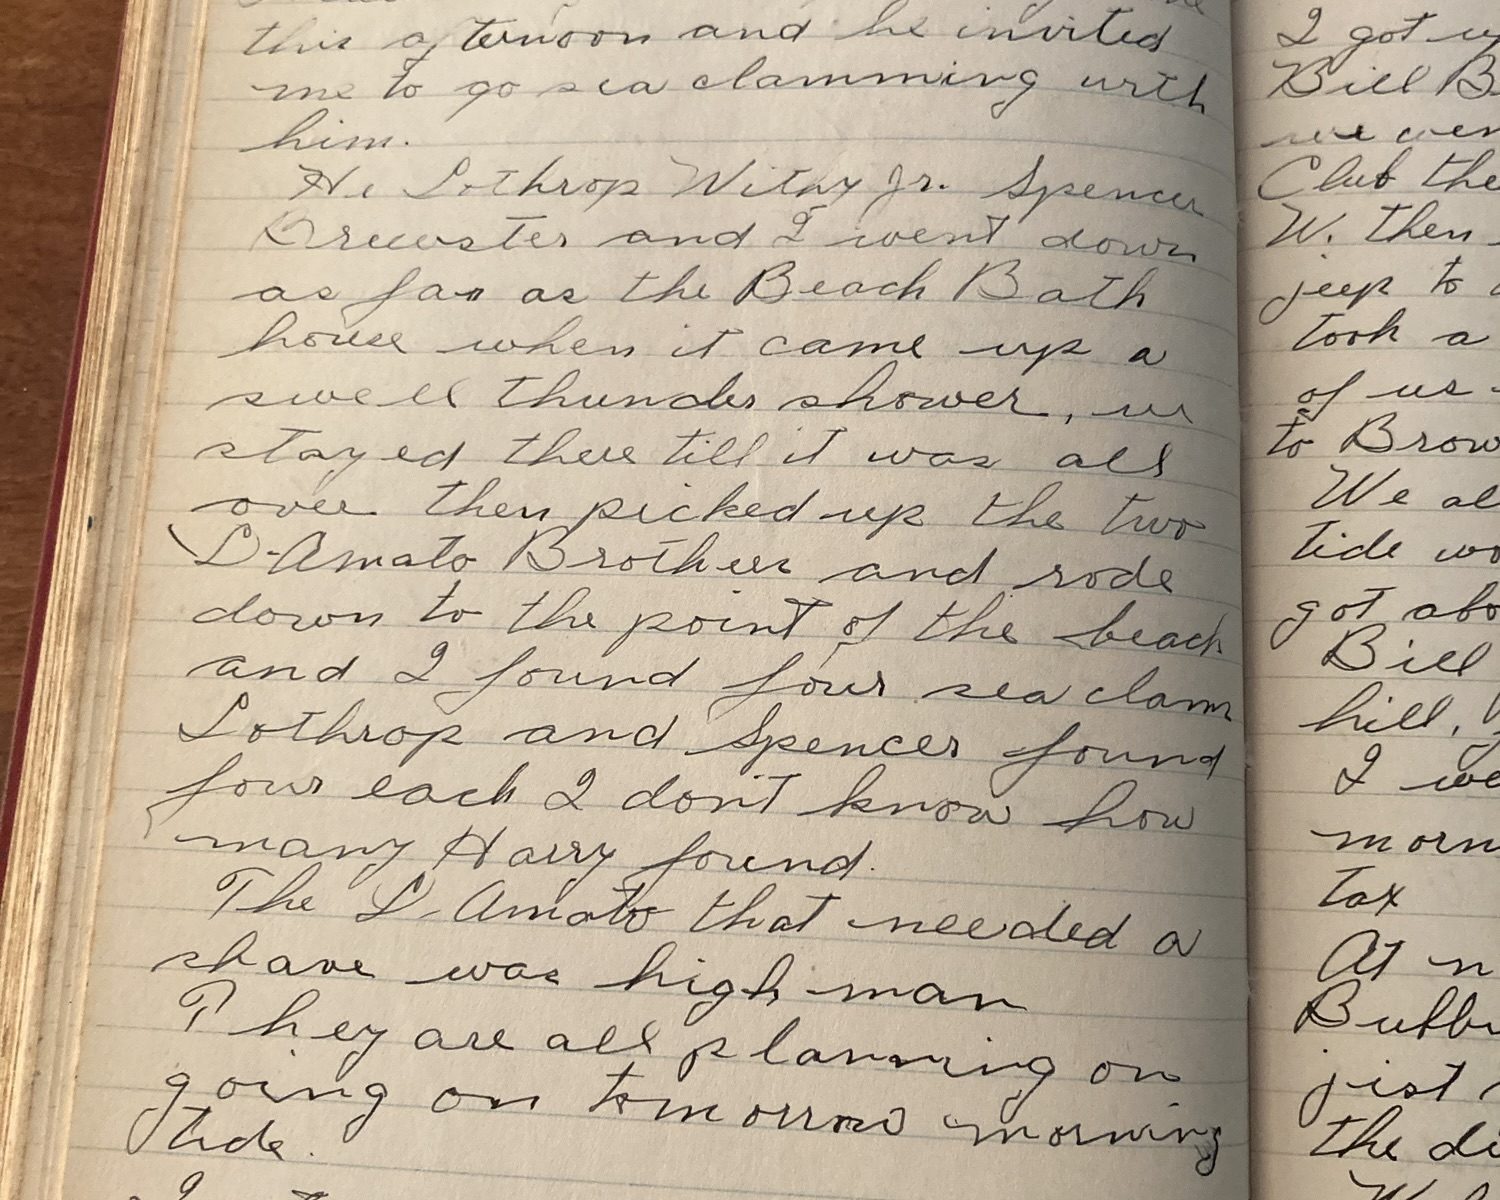 this afternoon and he invited
me to go sea clamming with
him.
He Lothrop Withy Jr. Spencer
Brewster and I went down
as far as the Beach Bath
house when it came up a
swell thunder shower, we
stayed there till it was all
over then picked up the two
D-Amato Brothers and rode
down to the point of the beach
and I found four sea clams
Lothrop and Spencer found
four each I don't know how
many Harry found.
The D-Amato that needed a
shave was high man
They are all planning on
going on tomorrow morning
tide.
I got up
Bill B
we wen
Club the
W. then
jeep to
took a
of us
to Brow
We al
tide wo
got abo
Bill
hill.
I we
morn
tax
At n
Bubbu
jist
the di